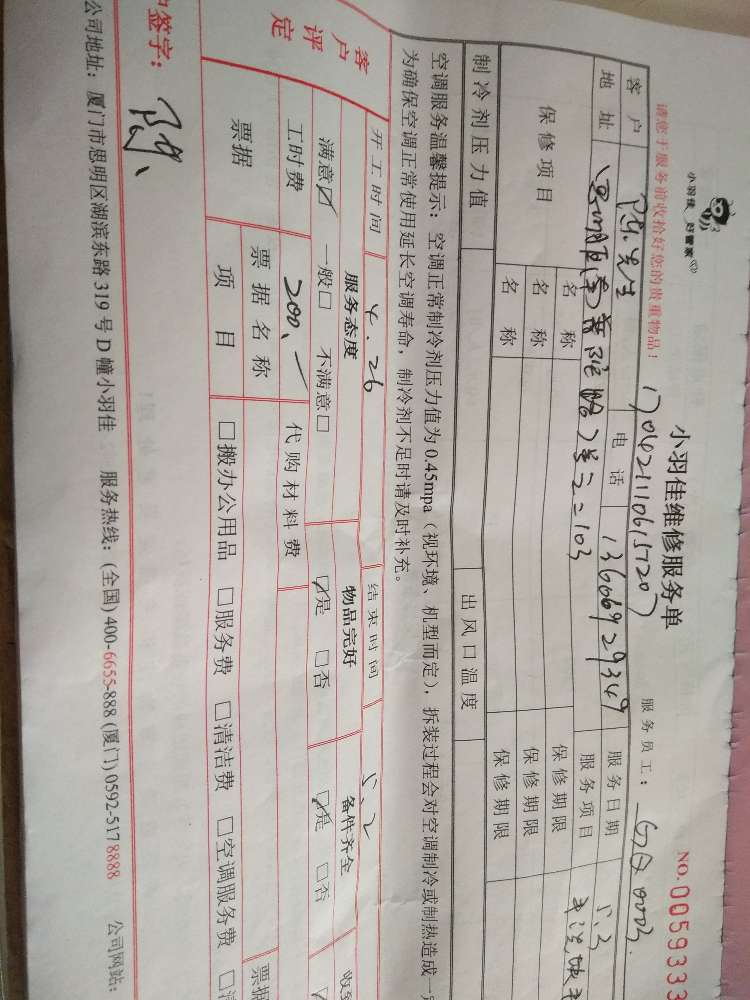 小羽佳 好管家
小羽佳维修服务单
NO.0059333
请您于服务前收拾好您的贵重物品！
服务员工：
客户 陈先生 电话 13606929349 服务日期 5.2
地址 服务项目
保修项目 名称 保修期限
名称 保修期限
名称 保修期限
制冷剂压力值 出风口温度
空调服务温馨提示：空调正常制冷剂压力值为0.45mpa（视环境、机型而定），拆装过程会对空调制冷或制热造成一定
为确保空调正常使用延长空调寿命，制冷剂不足时请及时补充。
开工时间 4.26 结束时间 5.2
客户评定 服务态度 物品完好 备件齐全
满意☑ 一般□ 不满意□ ☑是 □否 ☑是 □否
工时费 200. 代购材料费
票据 票据名称 票据
项目 □搬办公用品 □服务费 □清洁费 □空调服务费
签字：陈
公司地址：厦门市思明区湖滨东路319号D幢小羽佳 服务热线：(全国)400-6655-888 (厦门)0592-5178888 公司网站：